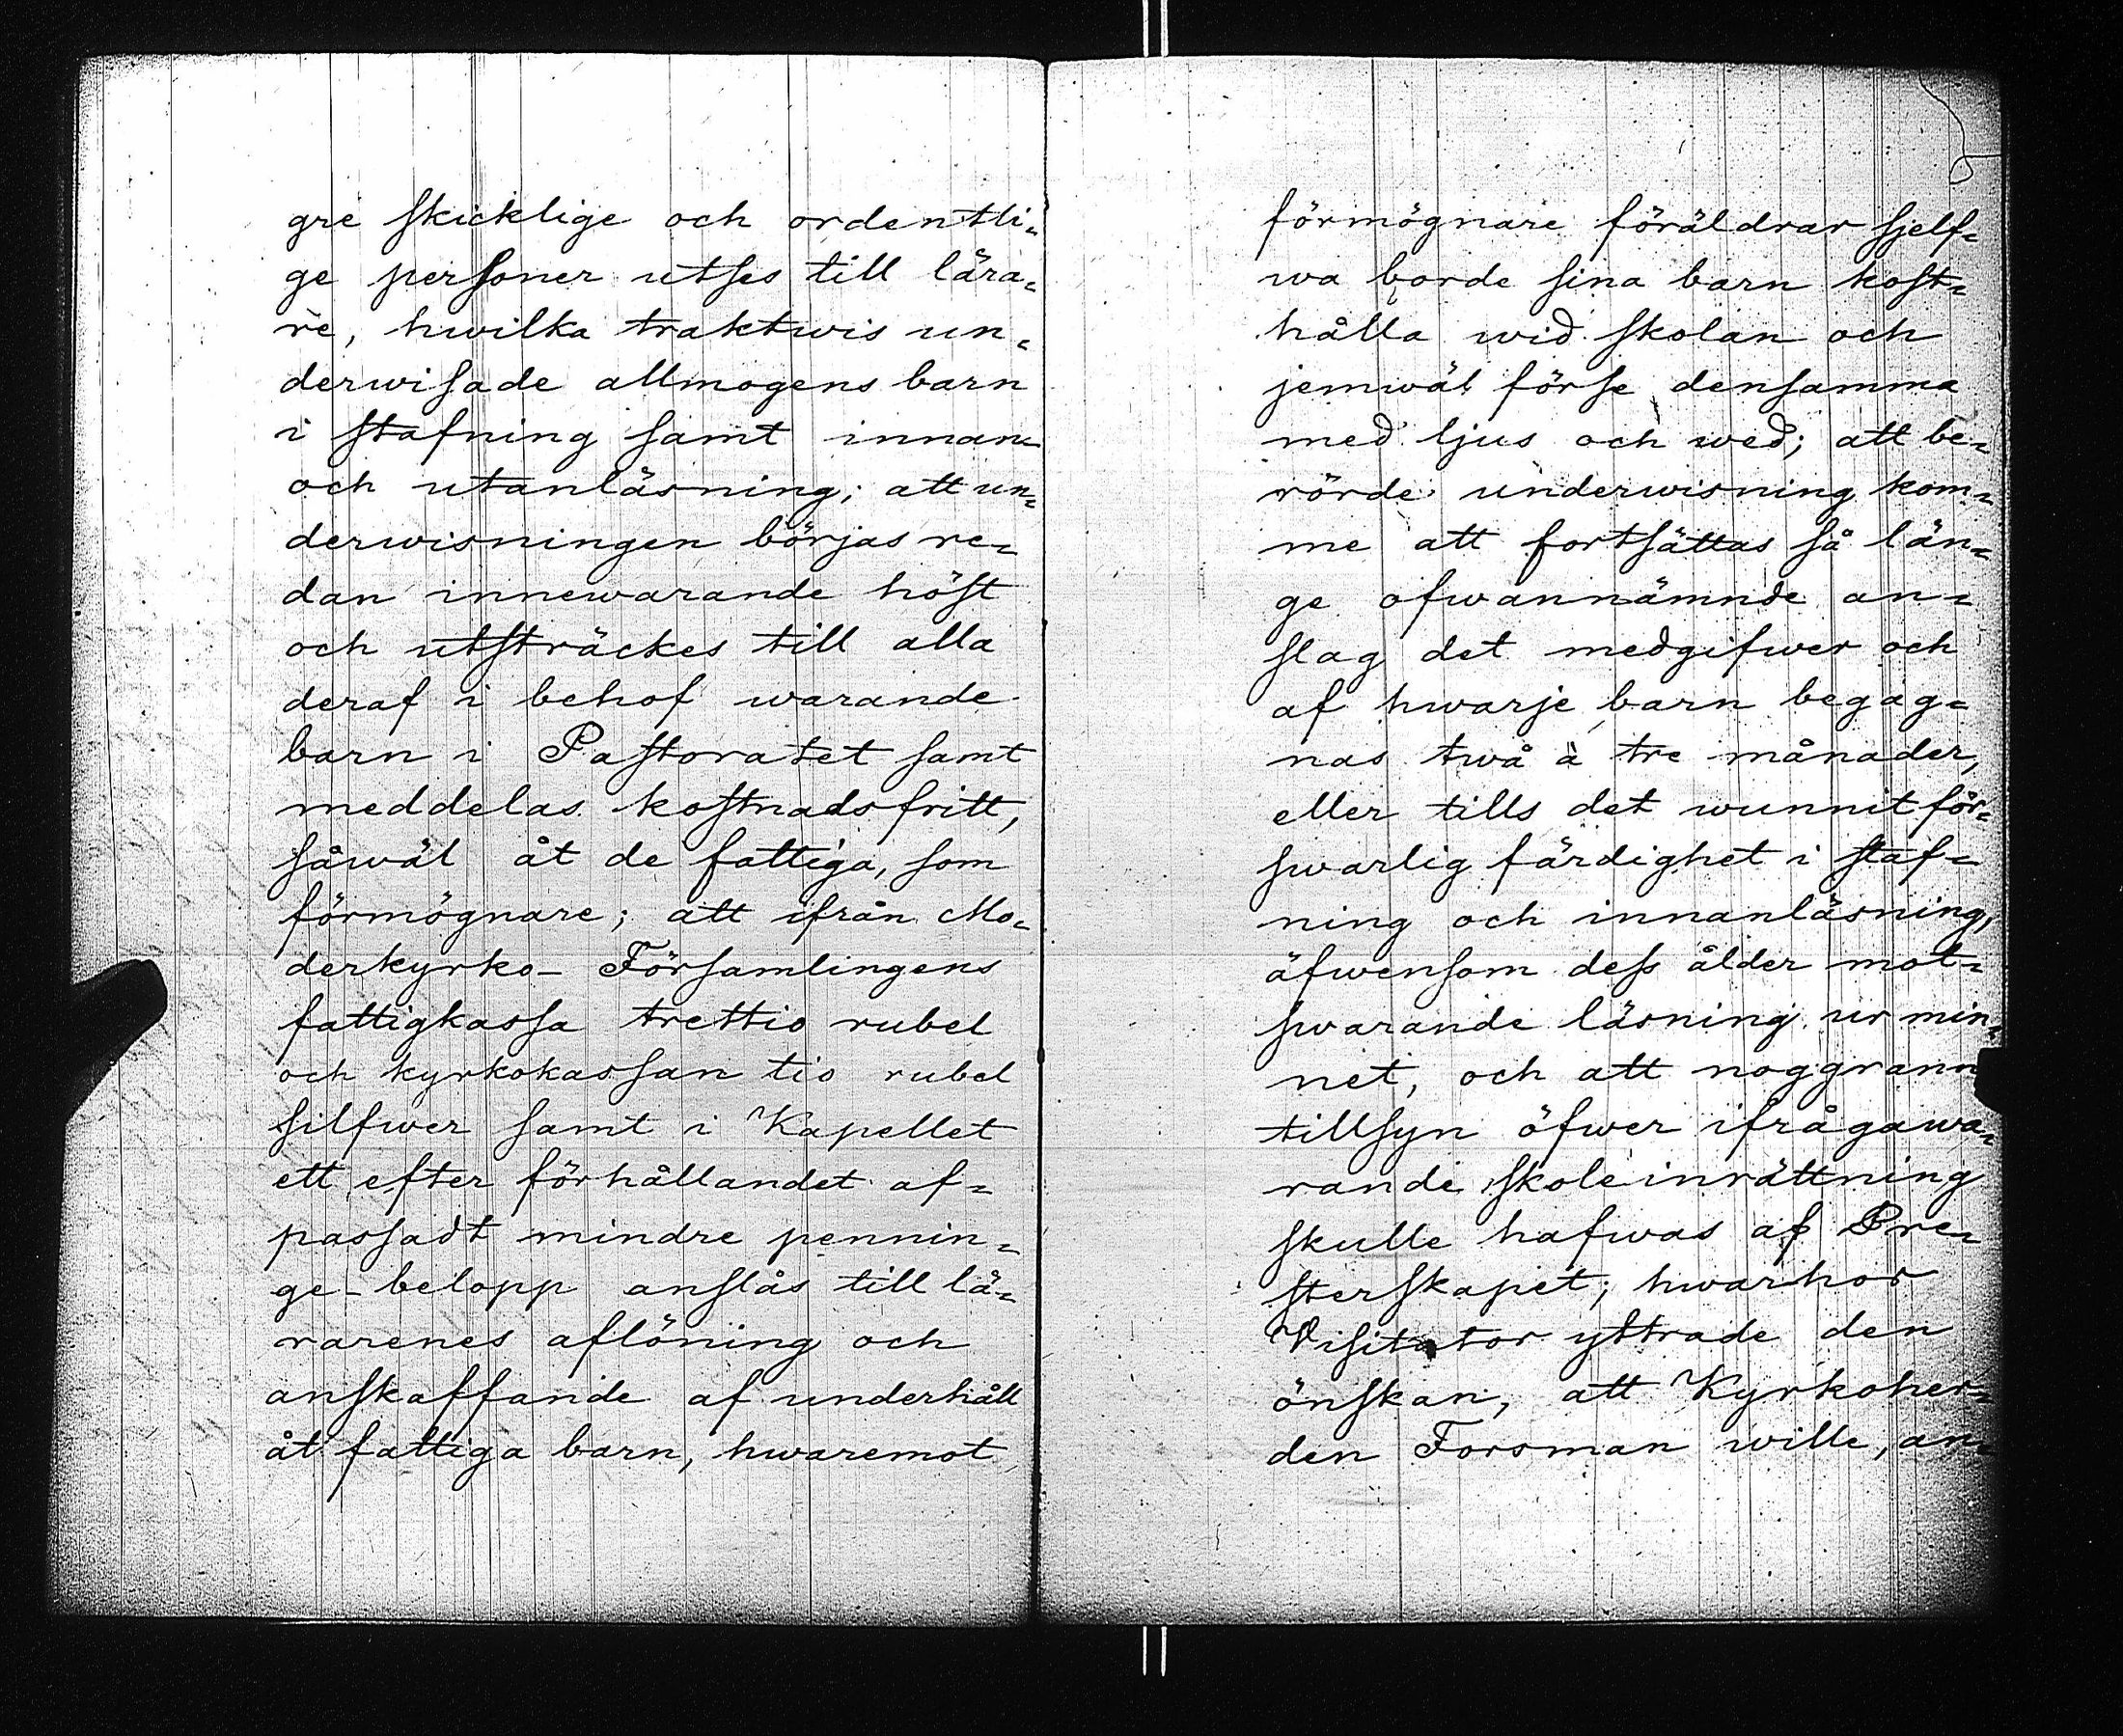 gre skicklige och ordentli-
ge personer utses till lära-
re, hwilka traktwis un-
derwisade allmogens barn
i stafning samt innan-
och utanläsning; att un-
derwisningen börjas re-
dan innewarande höst
och utsträckes till alla
deraf i behof warande
barn i Pastoratet samt
meddelas kostnadsfritt,
såwäl åt de fattiga, som
förmögnare; att ifrån Mo-
derkyrko- Församlingens
fattigkassa trettio rubel
och kyrkokassan tio rubel
silfwer samt i Kapellet
ett efter förhållandet af-
passadt mindre pennin-
ge-belopp anslås till lä-
rarenes aflöning och
anskaffande af underhåll
åt fattiga barn, hwaremot
förmögnare föräldrar sjelf-
wa borde sina barn kost-
hålla wid skolan och
jemwäl förse densamma
med ljus och wed; att be-
rörde underwisning kom-
me att fortsättas så län-
ge ofwannämnde an-
slag det medgifwer och
af hwarje barn begag-
nas twå à tre månader,
eller tills det wunnit för-
swarlig färdighet i staf-
ning och innanläsning,
äfwensom dess ålder mot-
swarande läsning ur min-
net, och att noggrann
tillsyn öfwer ifrågawa-
rande skoleinrättning
skulle hafwas af Pre-
sterskapet; hwarhos
Visitator yttrade den
önskan, att Kyrkoher-
den Forsman wille, an-